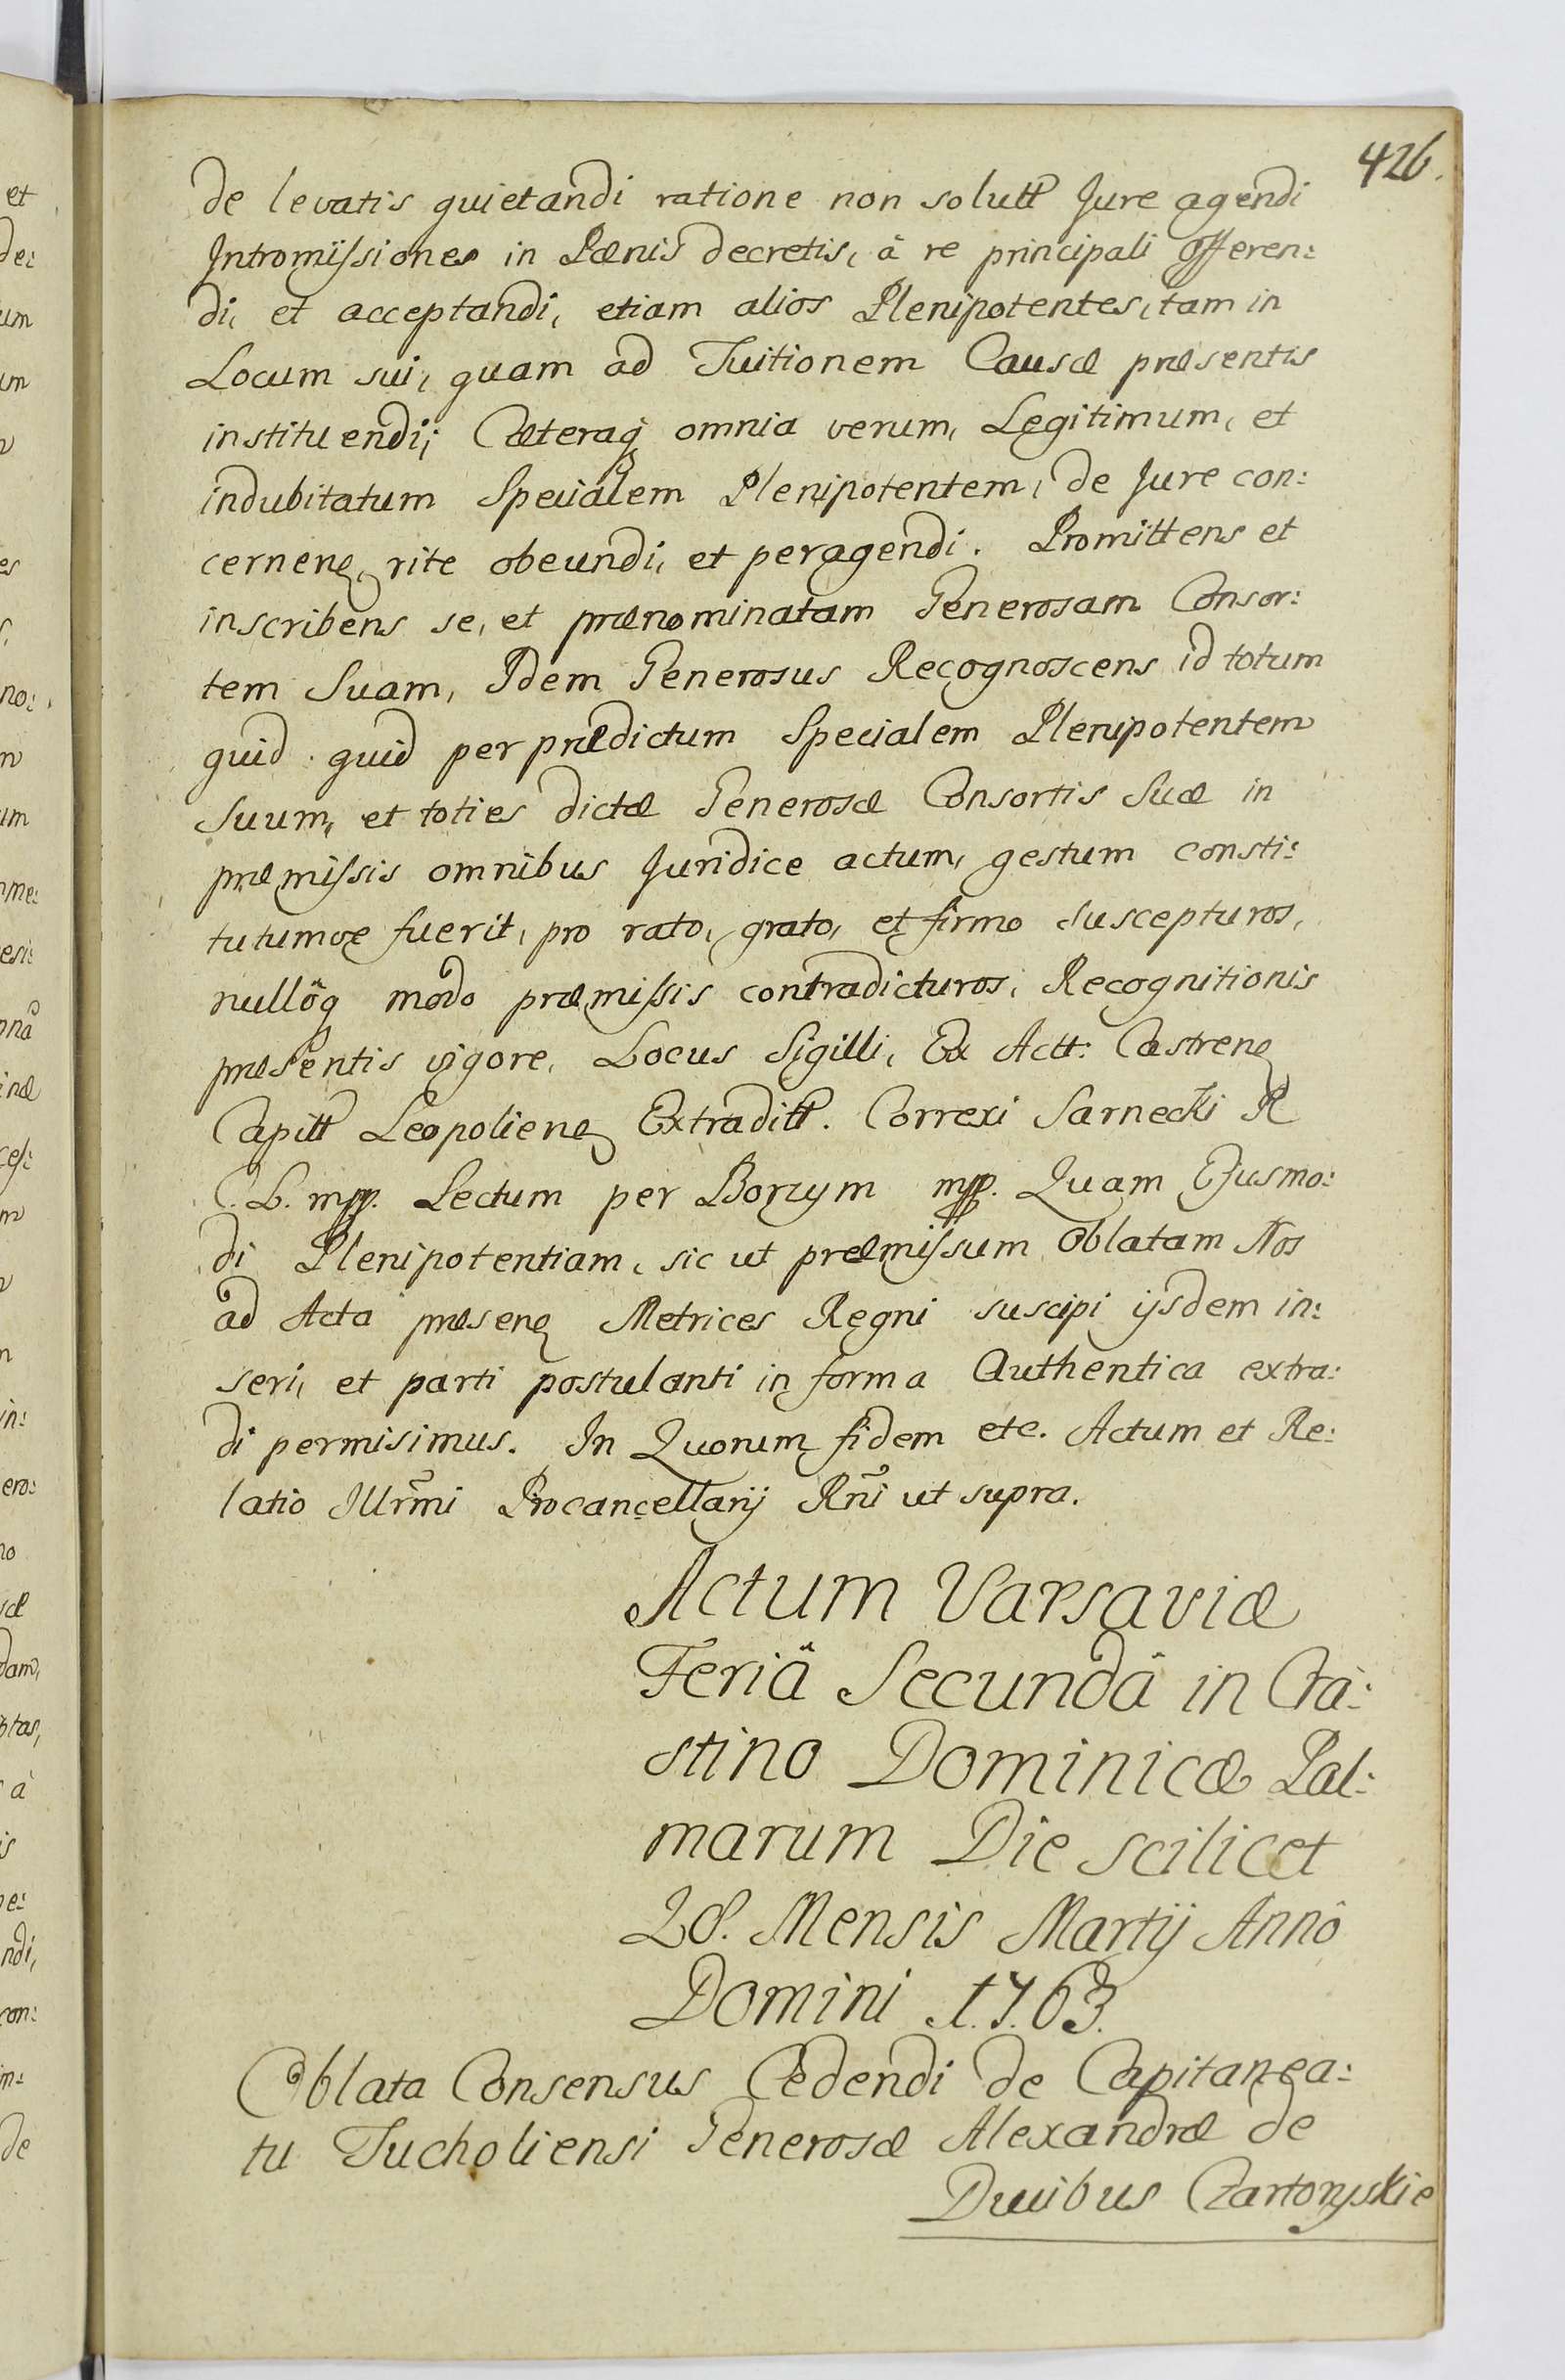 426.
de levatis quietandi ratione non solutt Jure agendi
Intromissiones in Pænis decretis, â re principali offeren:
di, et acceptandi, etiam alios Plenipotentes, tam in
Locum sui, quam ad Tuitionem Causæ præsentis
instituendi; Cæteraq omnia verum, Legitimum, et
indubitatum Specialem Plenipotentem, de Jure con:
cernen, rite obeundi, et peragendi. Promittens et
inscribens se, et prænominatam Generosam Consor:
tem Suam, Idem Generosus Recognoscens id totum
quid quid per prædictum Specialem Plenipotentem
Suum, et toties dictæ Generosæ Consortis Suæ in
præmissis omnibus Juridice actum, gestum consti:
tutumve fuerit, pro rato, grato, et firmo suscepturos,
nullôq modo præmissis contradicturos, Recognitionis
præsentis vigore. Locus Sigilli, Ex Actt: Castren
Capitt Leopolien Extraditt. Correxi Sarnecki R
C. L. mpp. Lectum per Borzym mpp. Quam Ejusmo:
di Plenipotentiam, sic ut præmissum oblatam Nos
ad Acta præsen Metrices Regni suscipi ijsdem in:
seri, et parti postulanti in forma Authentica extra:
di permisimus. In Quorum fidem etc. Actum et Re:
latio Illrmi Procancellarij Rni ut supra.
Actum Varsaviæ
Feriâ Secundâ in Cra:
stino Dominicæ Pal:
marum Die scilicet
28. Mensis Martij Annô
Domini 1763.
Oblata Consensus Cedendi de Capitanea:
tu Tucholiensi Generosæ Alexandræ de
Ducibus Czartoryskie